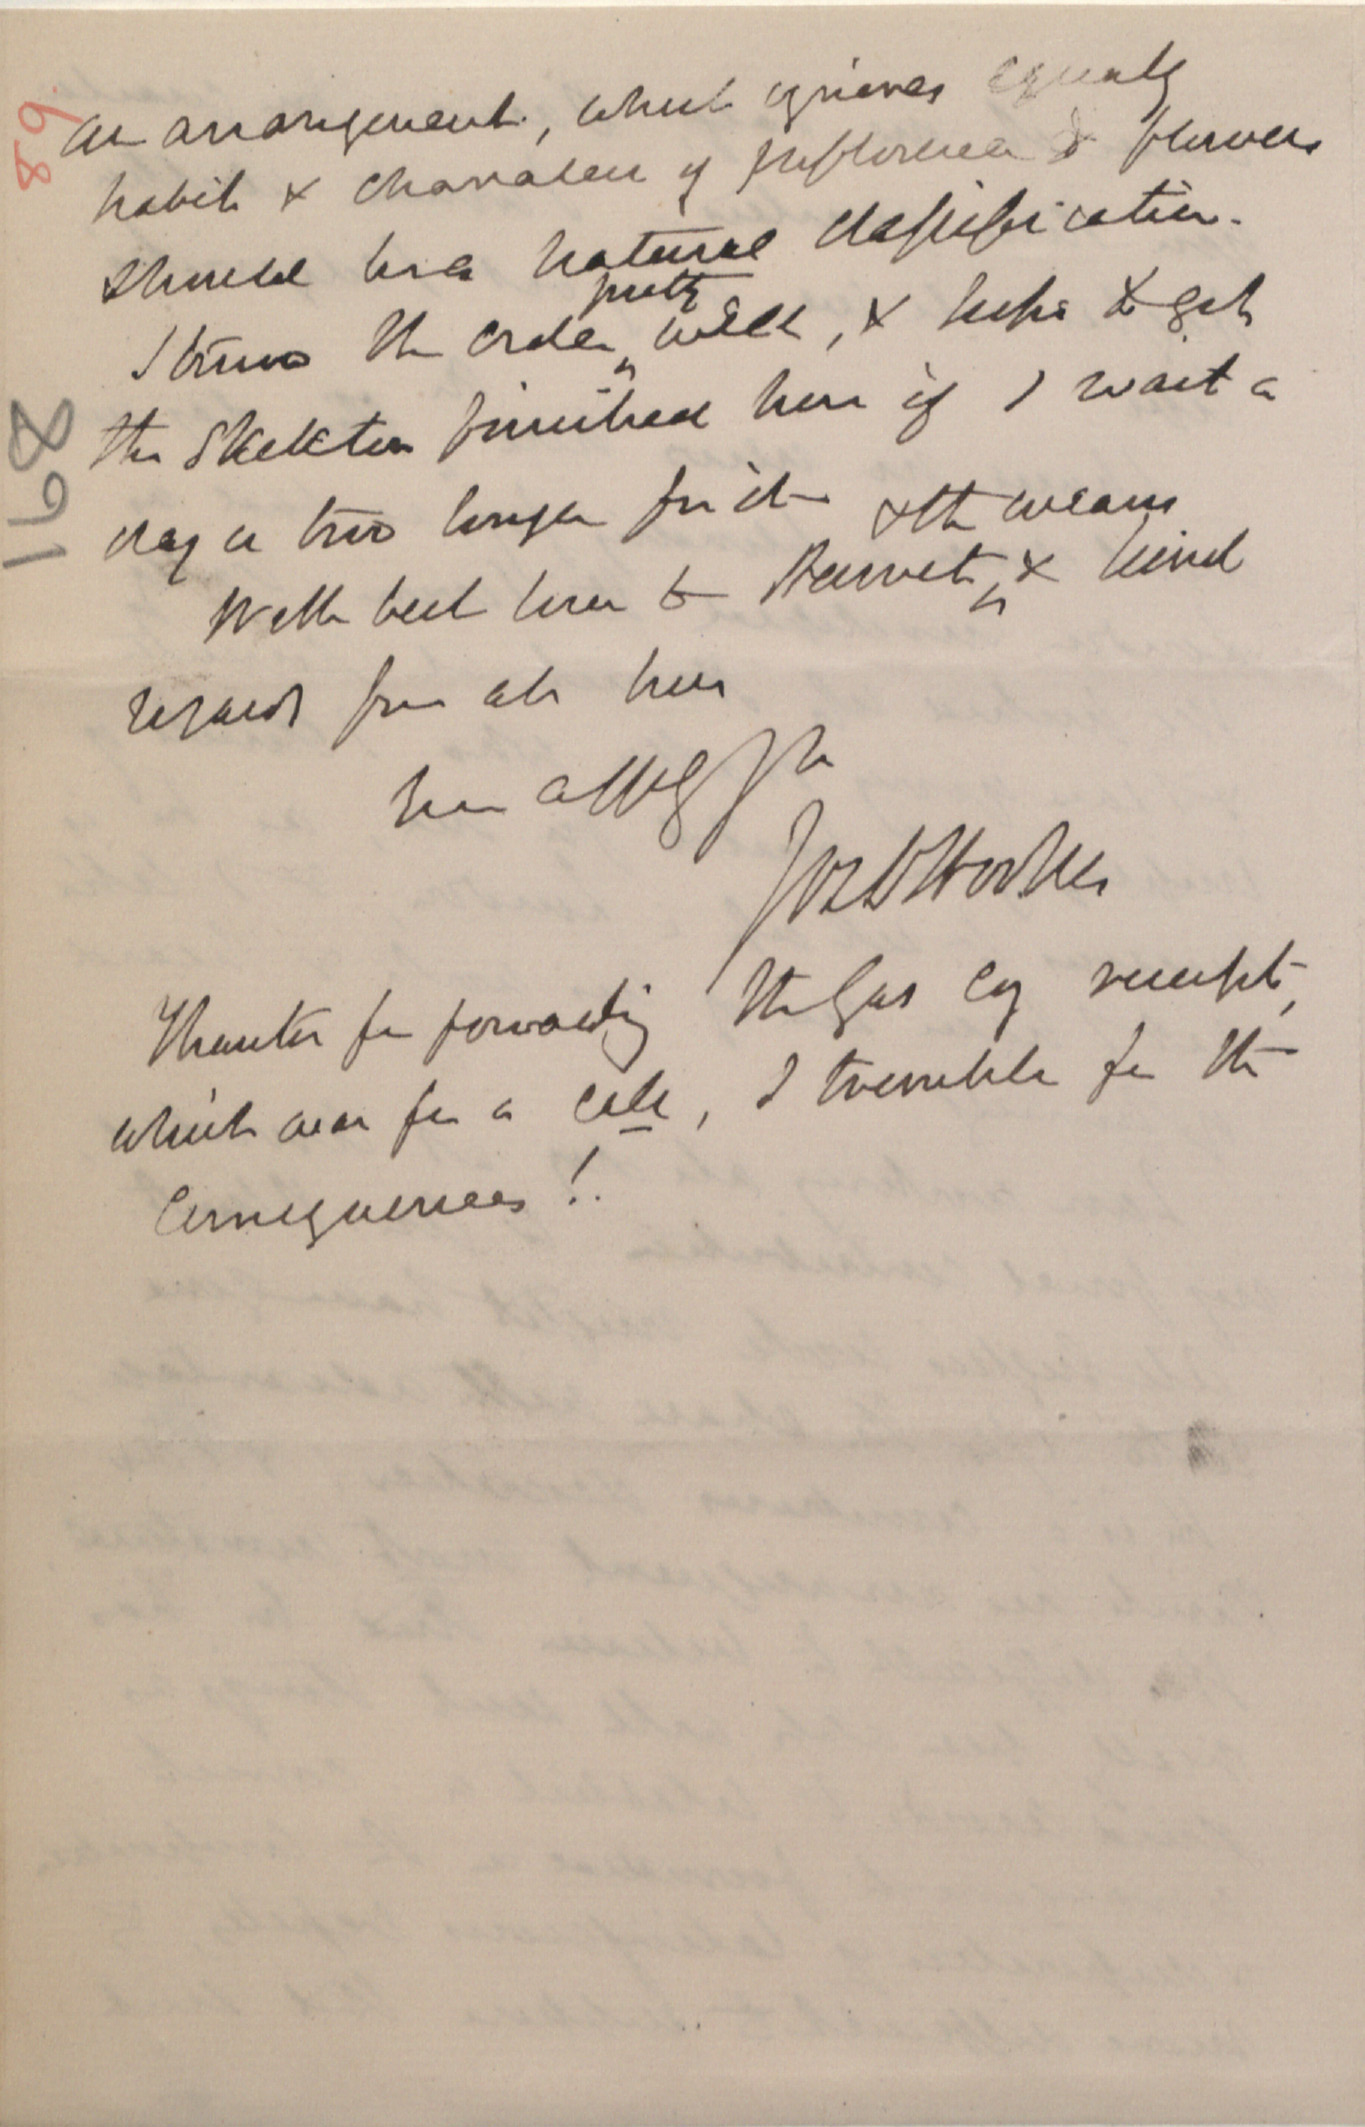 an arrangement, which ignores equally
habit & character of inflorescence & flowers
should be a natural classification.
I know the order pretty well, & hope to get
the Skeleton finished here if I wait a
day or two longer for it
With best love to Harriet, & the weans & kind
regards from all here
Ever affly Yrs
Jos D Hooker
Thanks for forwarding the Gas Coy receipt,
which was for a call, I tremble for the
Consequences!.
68
168